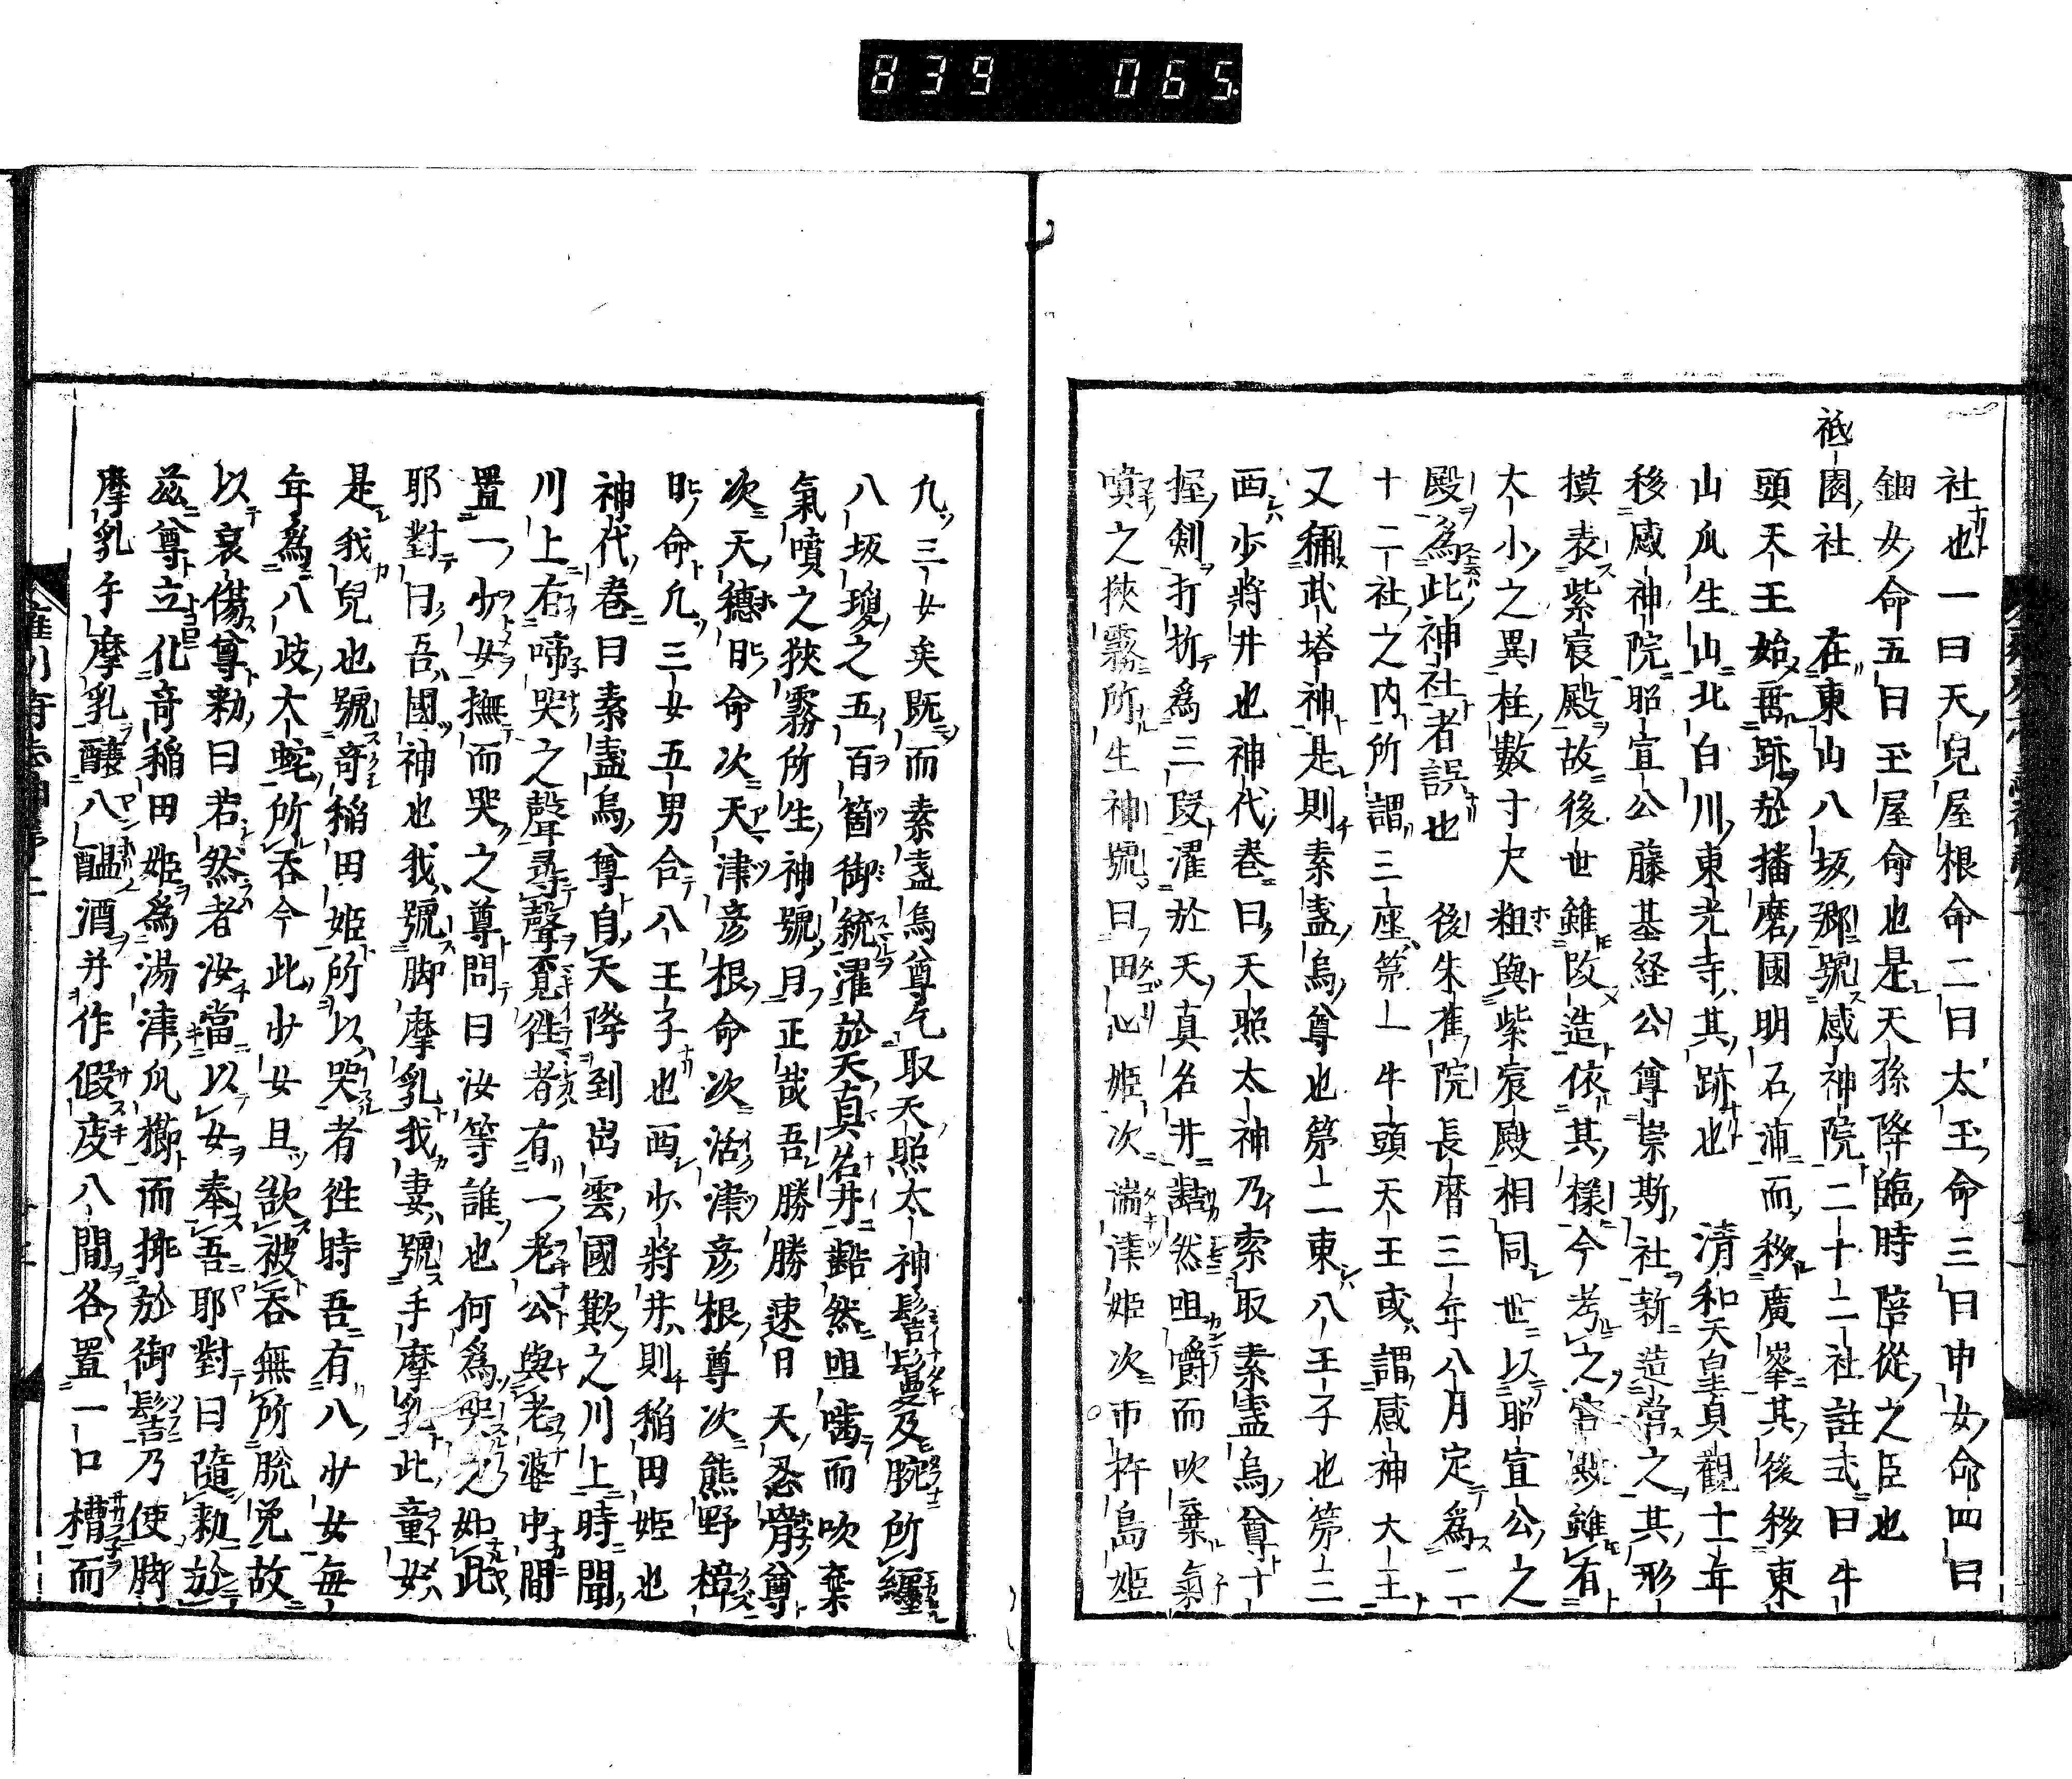 839 065
社也一曰天兒屋根命二曰太玉命三曰申女命四曰
鈿女命五曰玉屋命也是天孫降臨時陪從之臣也
祗園社 在東山八坂鄉號感神院二十二社註式曰牛
頭天王始垂跡於播磨國明石浦而移廣峯其後移東
山瓜生山北白川東光寺其跡也 清和天皇貞觀十一年
移感神院昭宣公藤基経公尊崇斯社新造營之其形
摸表紫宸殿故後世雖改造依其樣今考之宮殿雖有
大小之異柱數寸尺粗與紫宸殿相同世以昭宣公之
殿為此神社者誤也 後朱雀院長曆三年八月定為二
十二社之内所謂三座第一牛頭天王或謂感神大王
又稱武塔神是則素盞烏尊也第二東八王子也第三
西少將井也神代卷曰天照太神乃索取素盞烏尊十
握剣打折為三段濯於天真名井𪗾然咀嚼而吹棄氣
噴之狹霧所生神號曰田心姫次湍津姫次市杵島姫
凡三女矣既而素盞烏尊乞取天照太神髻鬘及腕所纏
八坂瓊之五百箇御統濯於天真名井𪗾然咀嚼而吹棄
氣噴之狹霧所生神號曰正哉吾勝勝速日天忍骨尊
次天穗日命次天津彦根命次活津彦根尊次熊野樟
日命凡三女五男合八王子也西少將井則稲田姫也
神代卷曰素盞烏尊自天降到出雲國簸之川上時聞
川上有啼哭之聲尋聲覓徃者有一老公與老婆中間
置一少女撫而哭之尊問曰汝等誰也何為哭之如此
耶對曰吾國神也我號脚摩乳我妻號手摩乳此童女
是我兒也號竒稲田姫所以哭者徃時吾有八少女每
年為八歧大蛇所吞今此少女且欲被吞無所脫免故
以哀傷尊勅曰若然者汝當以女奉吾耶對曰隨勅於
茲尊立化竒稲田姫為湯津爪櫛而挿於御髻乃使脚
摩乳手摩乳釀八醞酒并作假庪八間各置一口槽而